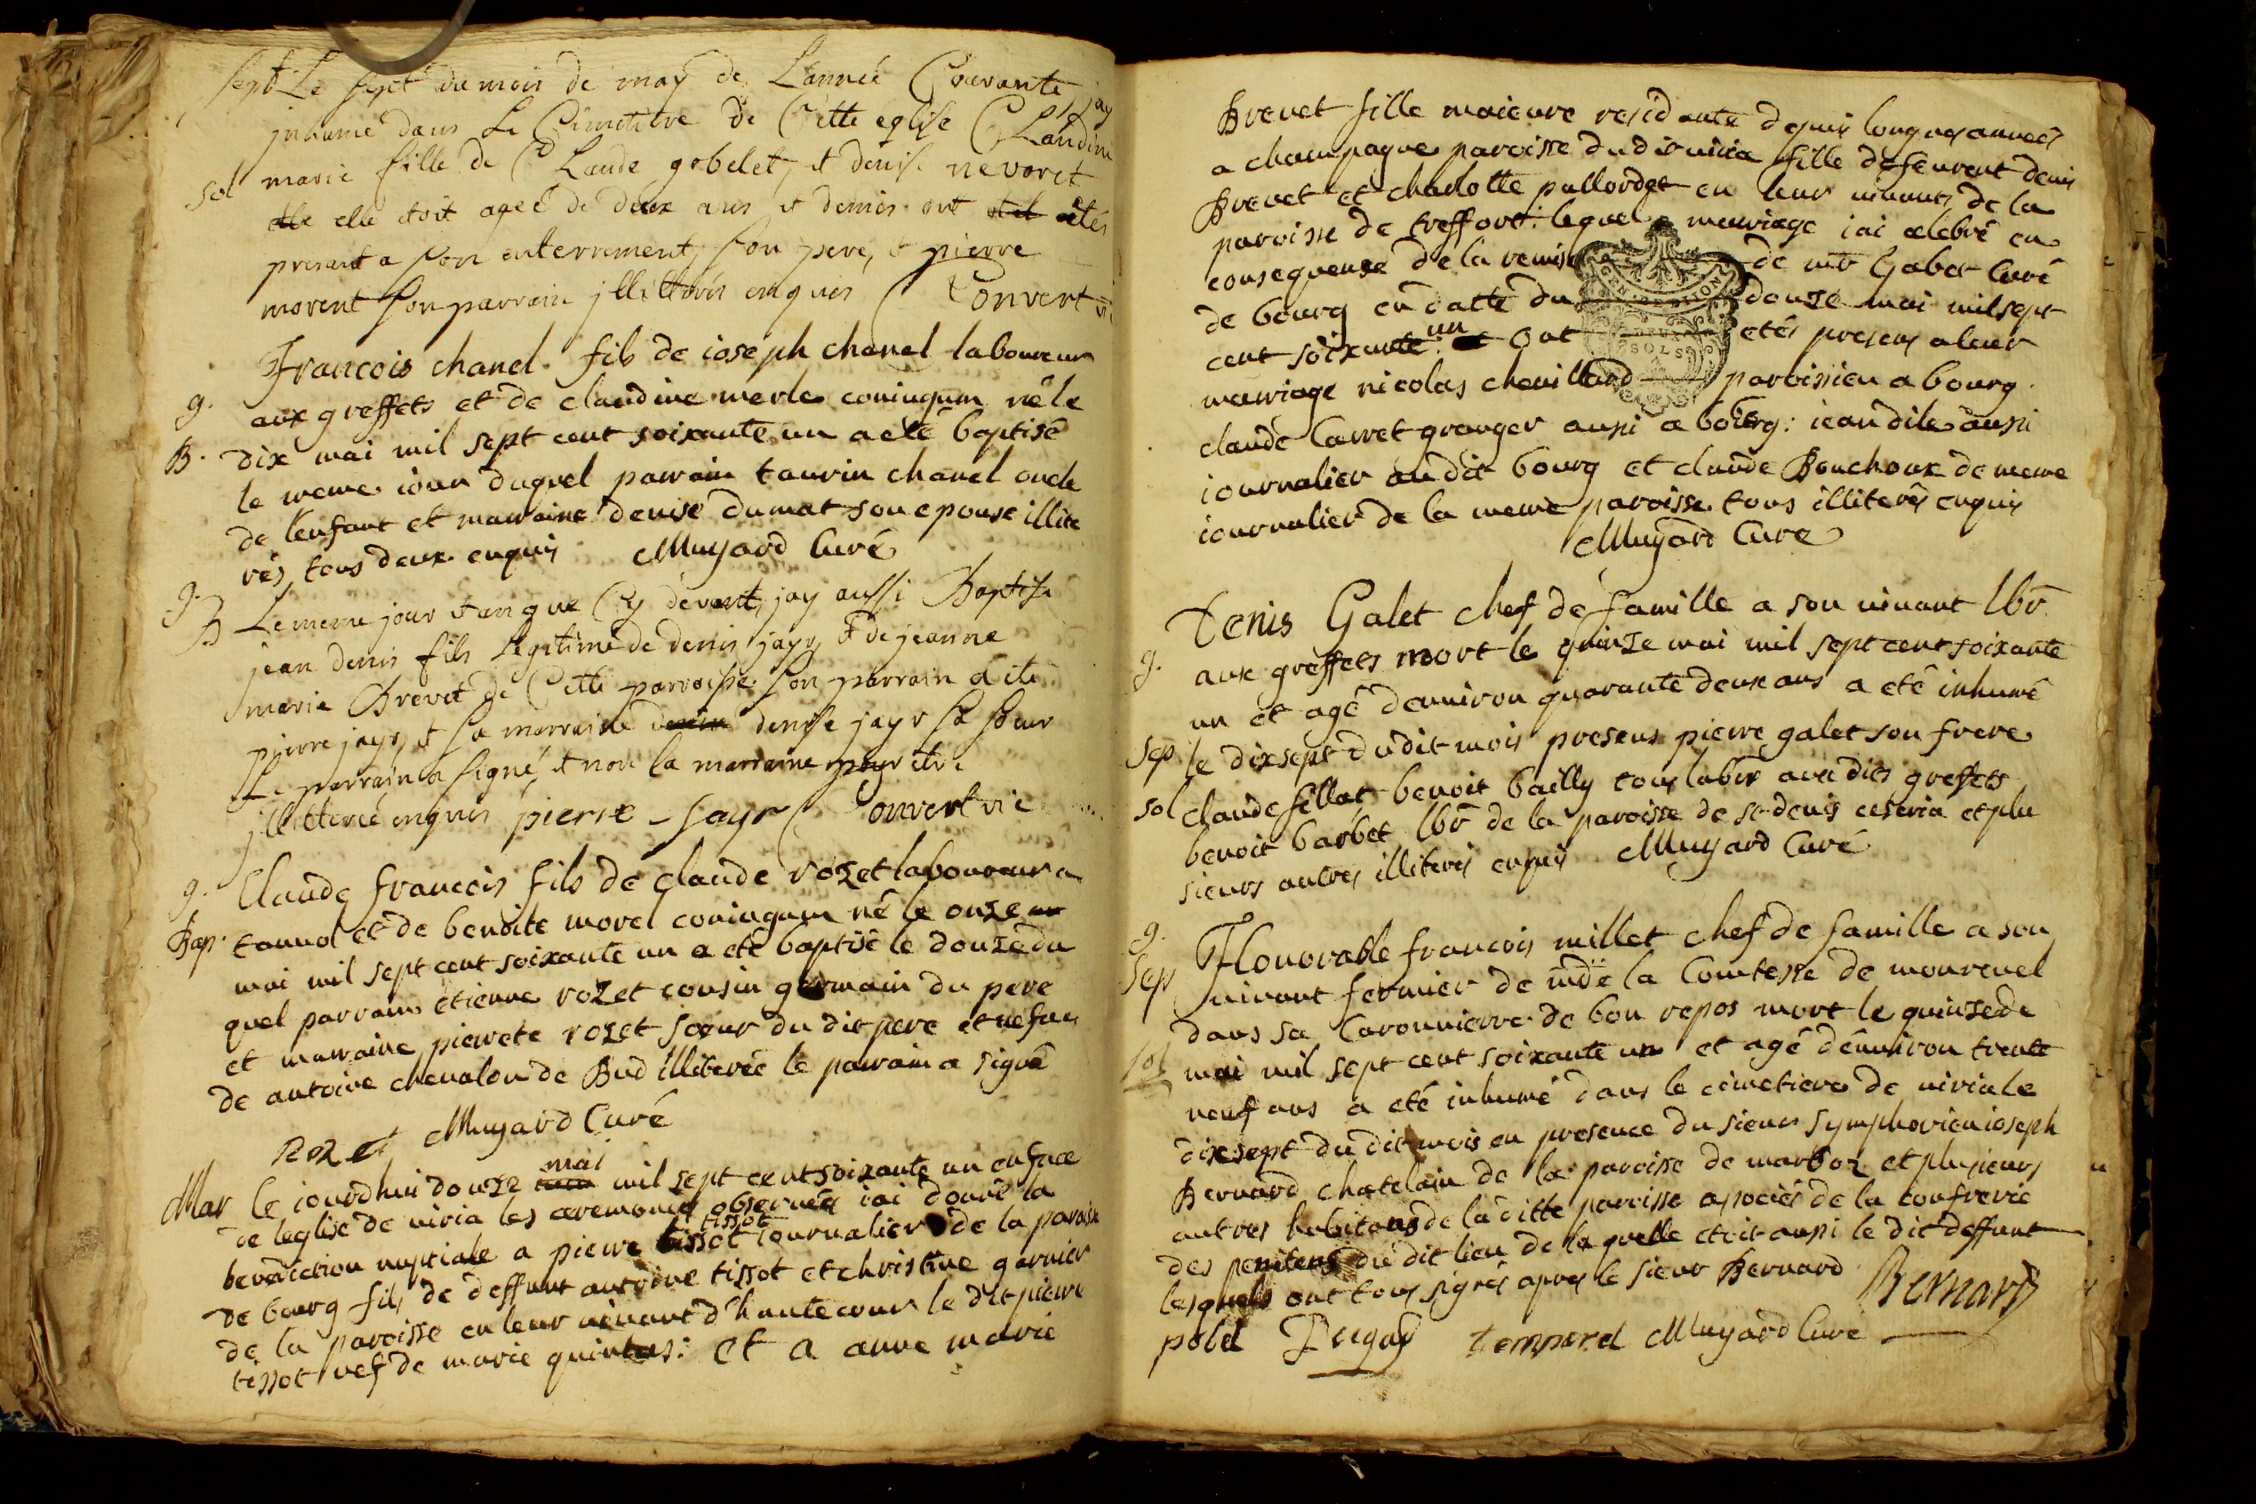 sept Le sept du mois de may de L'année Courante jay
jnhumé dans Le Cimetiere de Cette eglise CLaudine
sol marie fille de CLaude gobelet, et denise nevoret
elle elle etoit ageé de deux ans et demies ont etés
present a son enterrement, son pere, et pierre
morent son parrain jllitterés enquis Convert vic
Francois chanel fils de ioseph chanel laboureur
g. aux greffets et de claudine merle coniugum né le
B. dix mai mil sept cent soixante un a eté baptisé
le meme iour duquel parrain taurin chanel oncle
de l'enfant et marraine denise dumat son epouse illite
rés tous deux enquis Muyard Curé
g.
B Le meme jour et an que Cy devant, jay aussi Baptisé
jean denis fils Legitime de denis jayr, et de jeanne
marie Brevet de Cette parroisse son parrain a eté
pierre jayr, et sa marraine denise jayr sa soeur
Le parrain a signé, et non la marraine pour etre
jllitterée enquis pierre Jayr Convert vic
g. Claude francois fils de claude rozet laboureur a
Bap. tannol et de benoite morel coniugum né le onze
mai mil sept cent soixante un a eté baptisé le douze du
quel parrain etienne rozet cousin germain du pere
et marraine pierrete rozet soeur du dit pere et
de antoine chevalon de Bud illiterée le parrain a signé
Rozet Muyard Curé
Mar le iourdhui douze mai mil sept cent soixante un en face
de leglise de viria les ceremonies observées iai donné la
benediction nuptiale a pierre tissot tissot iournalier de la paroisse
de bourg fils de deffunt antoine tissot et christine garnier
de la paroisse en leur vivant d'hautecour le dit pierre
tissot vef de marie quintas: et a anne marie
Brevet fille maieure residante depuis longues années
a champagne paroisse dudit viria fille defeurent denis
Brevet et charlotte pallordet en leur vivants de la
paroisse de treffort: lequel mariage iai celebré en
consequence de la remise de mr Gabet Curé
de bourg en datte du douze mai mil sept
cent soixante un ont etés presens a leur
mariage nicolas chevillard paroissien a bourg
claude Carret granger aussi a bourg: iean dile aussi
iournalier au dit bourg et claude Bouchoux de meme
iournalier de la meme paroisse tous illiterés enquis
Muyard Cure
GEN. DE DIJON
DEUX
SOLS
Denis Galet chef de famille a son vivant lbr
g. aux greffets mort le quinze mai mil sept cent soixante
un et agé denviron quarante deux ans a eté inhumé
sep le dixsept dudit mois presens pierre galet son frere
sol claude fillat benoit bailly tous labrs aux dits greffets
benoit barbet lbr de la paroisse de st denis ceseria et plu
sieurs autres illiterés enquis Muyard Curé
g. Honorable francois millet chef de famille a son
Sep vivant fermier de mde la Comtesse de monrevel
dans sa Caronnierre de bon repos mort le quinze de
sol mai mil sept cent soixante un et agé d'environ trente
neuf ans a eté inhumé dans le cimetiere de viria le
dixsept du dit mois en presence du sieur symphorien ioseph
Bernard chatelain de la paroisse de marboz et plusieurs
autres habitans de la ditte paroisse associés de la confrerie
des penitens du dit lieu de laquelle etoit aussi le dit deffunt
lesquels ont tous signés apres le sieur Bernard Bernard
pobel Dugas temporel Muyard Curé